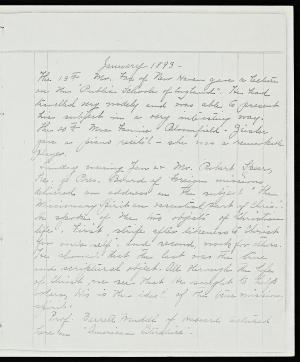 January 1893 -
The 13th Mr. Fay of New Haven gave a lecture
on the "Public Schools of England". He had
travelled very widely and was able to present
his subject in a very interesting way.
The 20th Mrs. Fannie Bloomfield-Zeisler
gave a piano recital - she was a remarkable
player.
Sunday evening Jan 22 Mr. Robert Speer,
Sec. of Pres. Board of Foreign missions
delivered an address on the subject "The
Missionary Spirit an essential part of Chris."
He spoke of the two objects of Christian
life. First, strife after likeness to Christ
for one's self, and second, work for others.
He showed that the last was the true
and scriptural object. All through the life
of Christ we see that He sought to help
others, His is the idea of the true missionary
spirit.
Prof. Barrett Wendell of Harvard lectured
here on "American Literature".